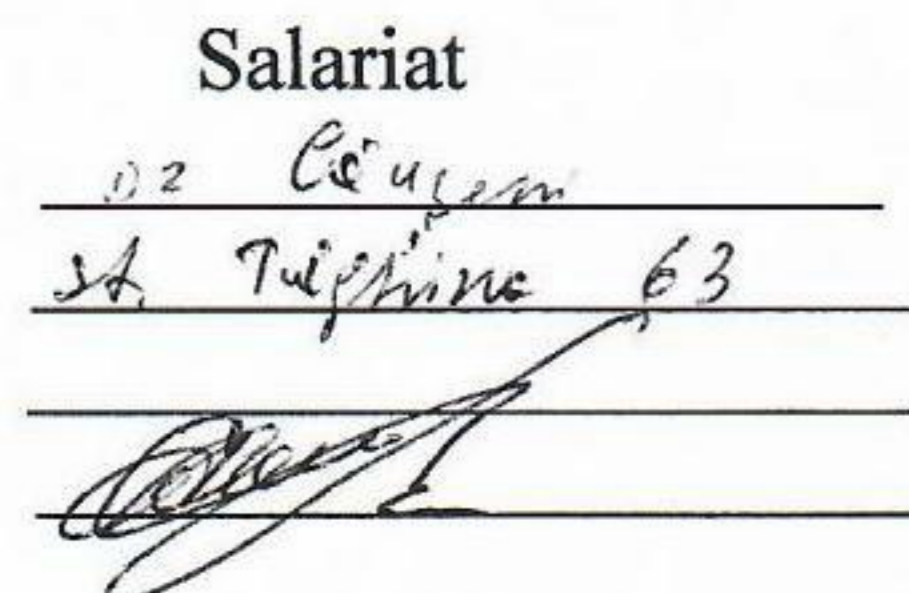 Salariat
02 Căușeni
st. Tighina 63